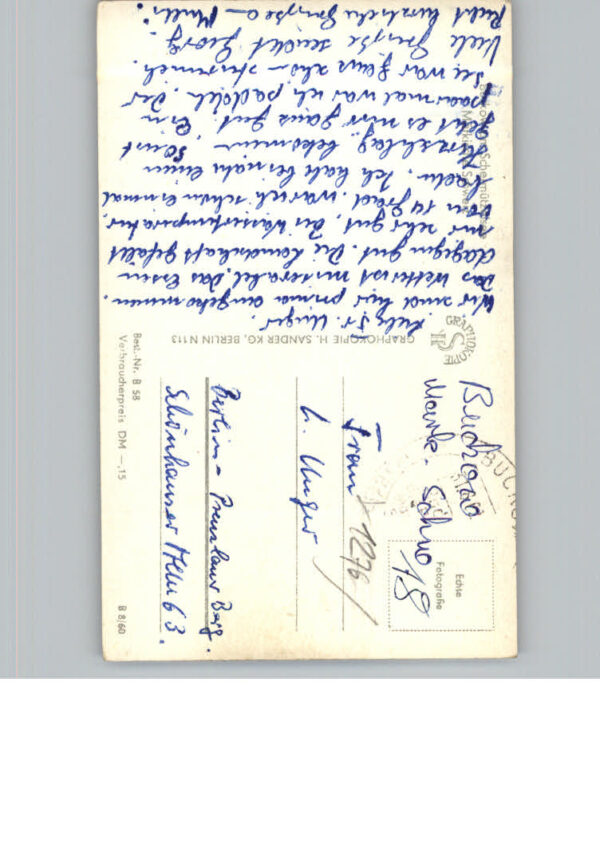 Liebe Fr. Unger.
Wir sind hier prima angekommen.
Das Wetter ist miserabel, das Essen
dagegen gut. Die Landschaft gefällt
mir sehr gut. Die Wassertemperatur
von 14 Grad. war ich schon einmal
baden. Ich hatte beinah einen
Hitzschlag bekommen. Sonst
geht es mir ganz gut. Ein
paarmal war ich paddeln. Der
See war ganz schön stürmisch.
Viele Grüsse sendet Georg.
Recht herzliche Grüsse
GRAPHOKOPIE H. SANDER KG, BERLIN N 113
GRAPHOKOPIE
HS
Best.-Nr. B 58
Verbraucherpreis DM —,15
B 8/60
Echte
Fotografie
18
Buckow
Märk. Schw.
BUCKOW
Frau
L. Unger
1276
Berlin - Prenzlauer Berg.
Schönhauser Allee 63.